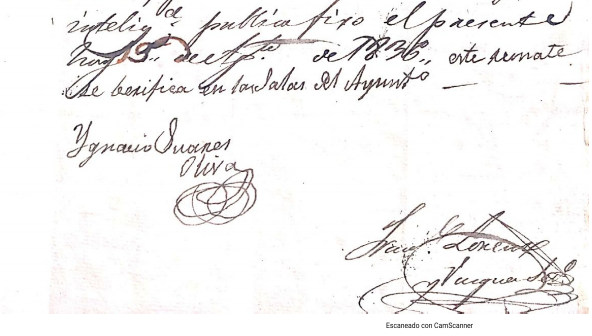 intelig.ª publica fixo el presente
hoy 15,, de Ag.to de 1836,, este remate
se berifica en las Salas del Ayunto
Ygnacio Suares
Oliva
Fran.co Lorenzo
Escaneado con CamScanner